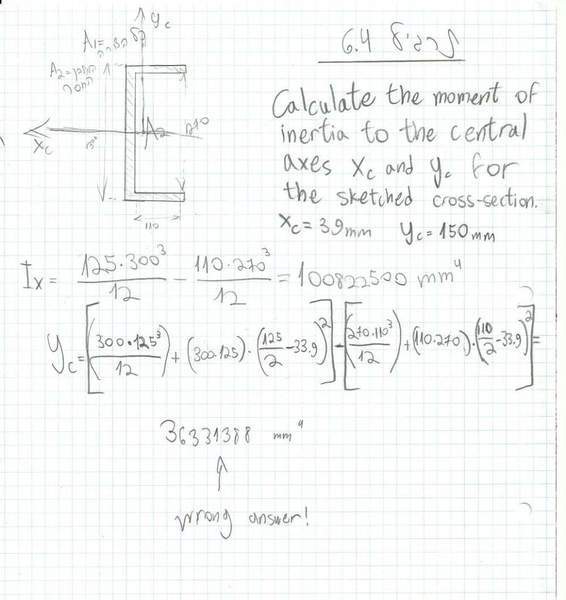 תרגיל 6.4
yc
A1=
A2=
270
A2
xc
110
Calculate the moment of
inertia to the central
axes xc and yc for
the sketched cross-section.
xc=39mm yc=150mm
Ix= 125·300³/12 - 110·270³/12 = 100822500 mm⁴
yc=[(300·125³/12)+(300·125)·(125/2-33.9)²]-[(270·110³/12)+(110·270)·(110/2-33.9)²]=
36331388 mm⁴
wrong answer!